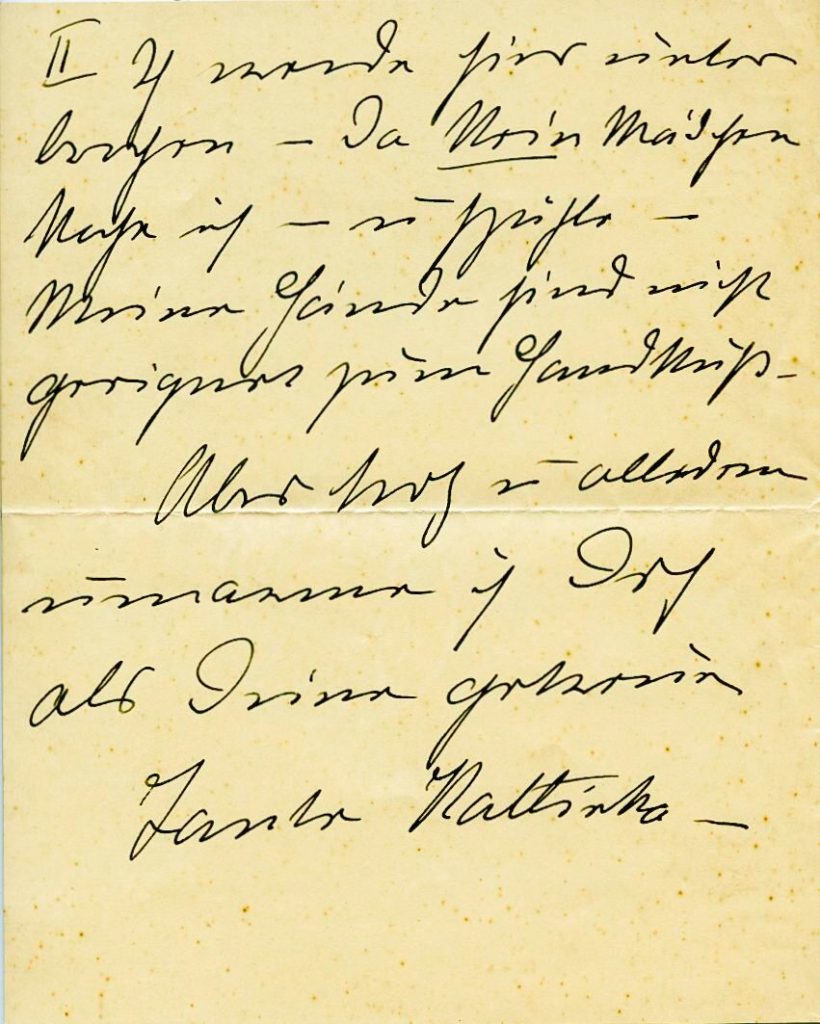 II Ich werde hier unter
brechen — Da Kein Mädchen
Koche ich — u spühle —
Meine Hände sind nicht
geeignet zum Handkuß —
Aber trotz u alledem
umarme ich Dich
als Deine getreue
Tante Kattinka —